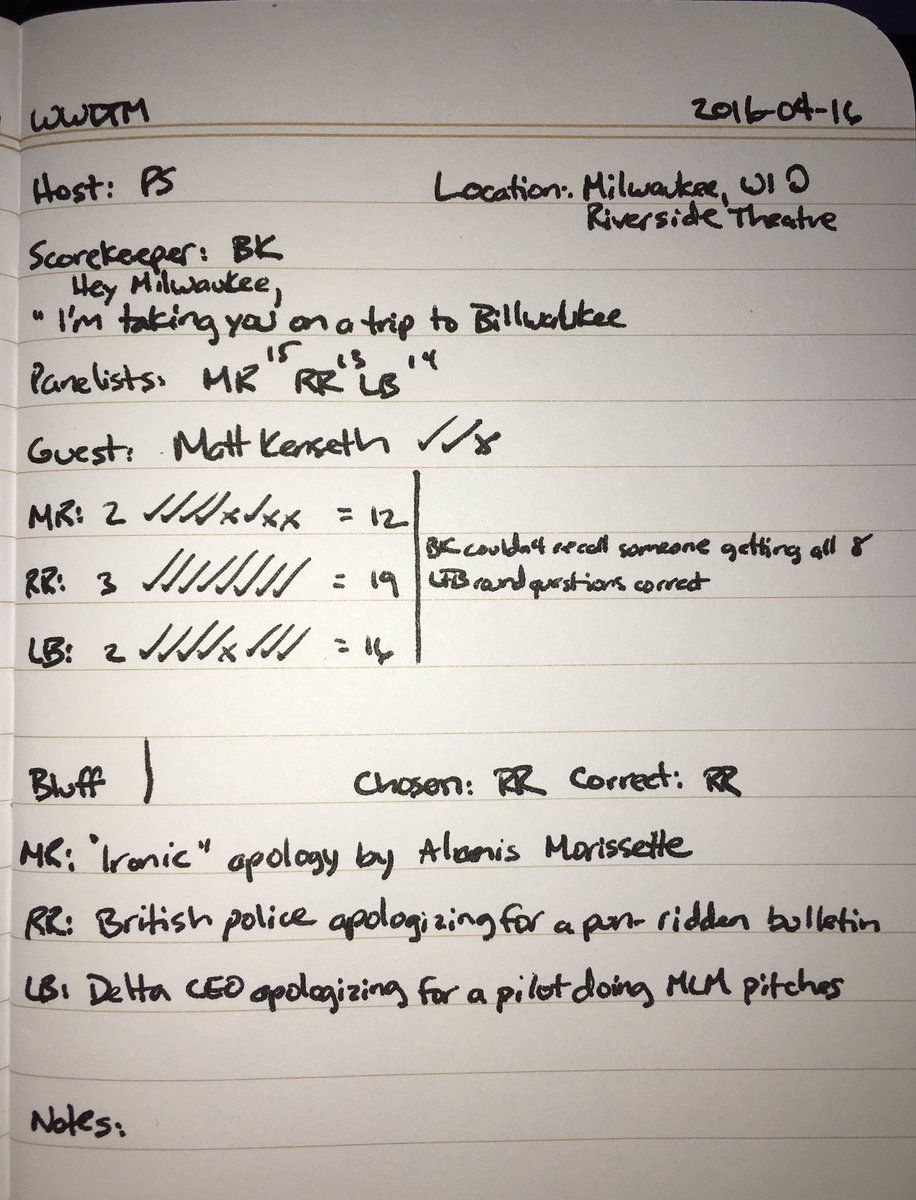 WWDTM 2016-04-16
Host: PS Location: Milwaukee, WI
Riverside Theatre
Scorekeeper: BK
Hey Milwaukee,
"I'm taking you on a trip to Billwaukee
Panelists: MR 15 RR 13 LB 14
Guest: Matt Kenseth ✓✓x
MR: 2 ✓✓✓✓x✓xx = 12
RR: 3 ✓✓✓✓✓✓✓✓ = 19
LB: 2 ✓✓✓✓x✓✓✓ = 16
BK couldn't recall someone getting all 8
LFB round questions correct
Bluff Chosen: RR Correct: RR
MR: "Ironic" apology by Alanis Morissette
RR: British police apologizing for a pun-ridden bulletin
LB: Delta CEO apologizing for a pilot doing MLM pitches
Notes: